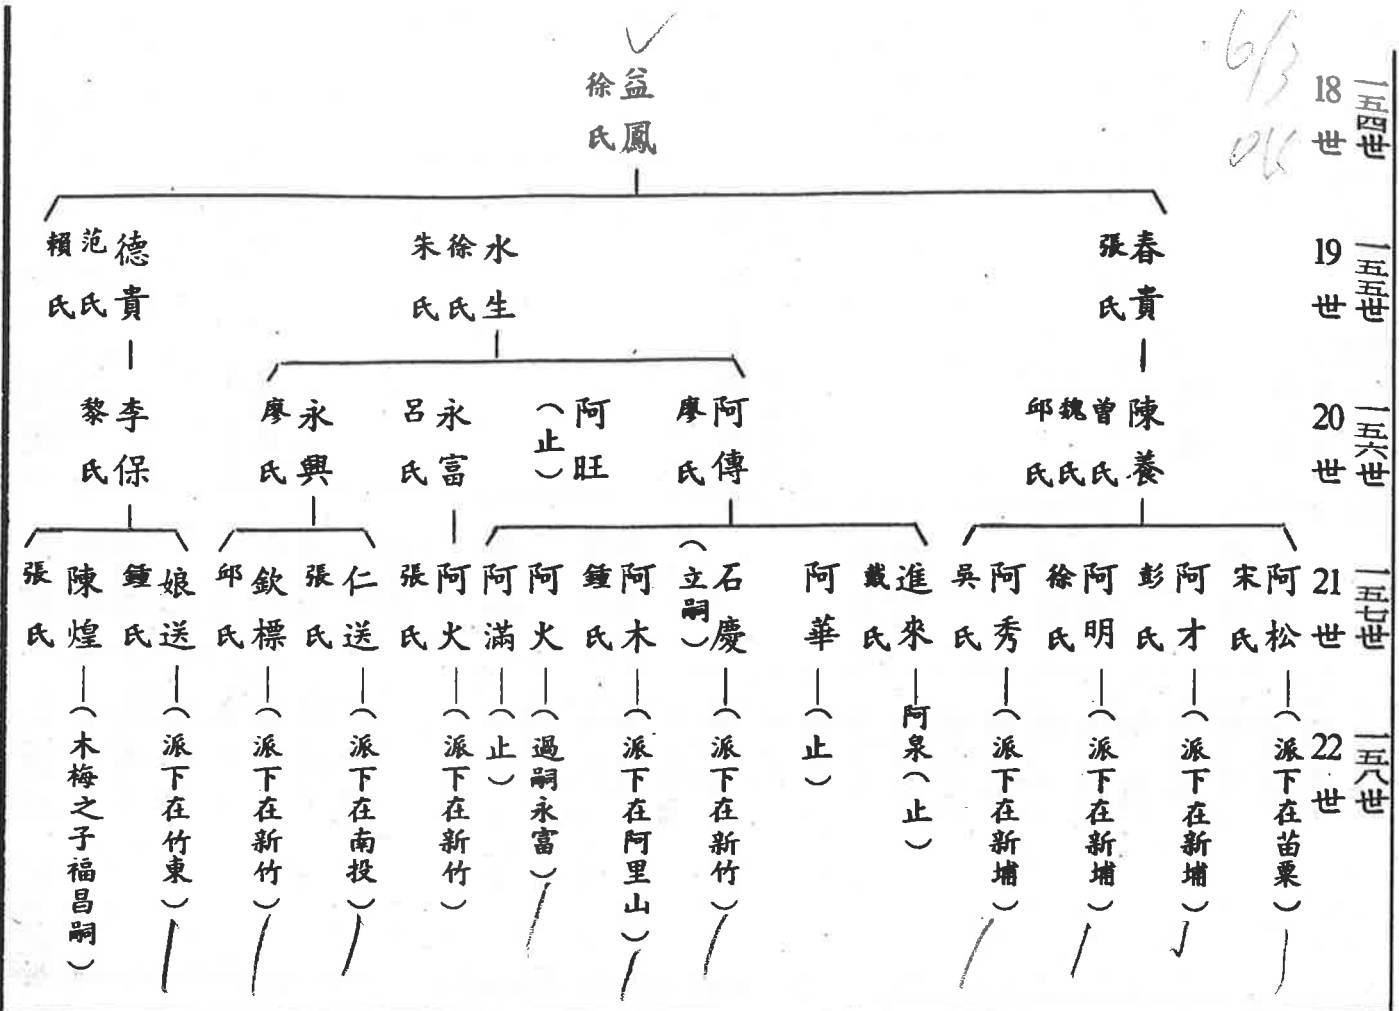 一五四世
18世
益鳳
徐氏
6/3
OK
一五五世
19世
春貴
張氏
水生
徐氏
朱氏
德貴
范氏
賴氏
一五六世
20世
陳養
曾氏
魏氏
邱氏
阿傳
廖氏
阿旺
(止)
永富
呂氏
永興
廖氏
李保
黎氏
一五七世
21世
阿松
宋氏
阿才
彭氏
阿明
徐氏
阿秀
吳氏
進來
戴氏
阿華
石慶
(立嗣)
阿木
鍾氏
阿火
阿滿
阿火
張氏
仁送
張氏
欽標
邱氏
娘送
鍾氏
陳煌
張氏
一五八世
22世
(派下在苗栗)
(派下在新埔)
(派下在新埔)
(派下在新埔)
阿泉(止)
(止)
(派下在新竹)
(派下在阿里山)
(過嗣永富)
(止)
(派下在新竹)
(派下在南投)
(派下在新竹)
(派下在竹東)
(木梅之子福昌嗣)